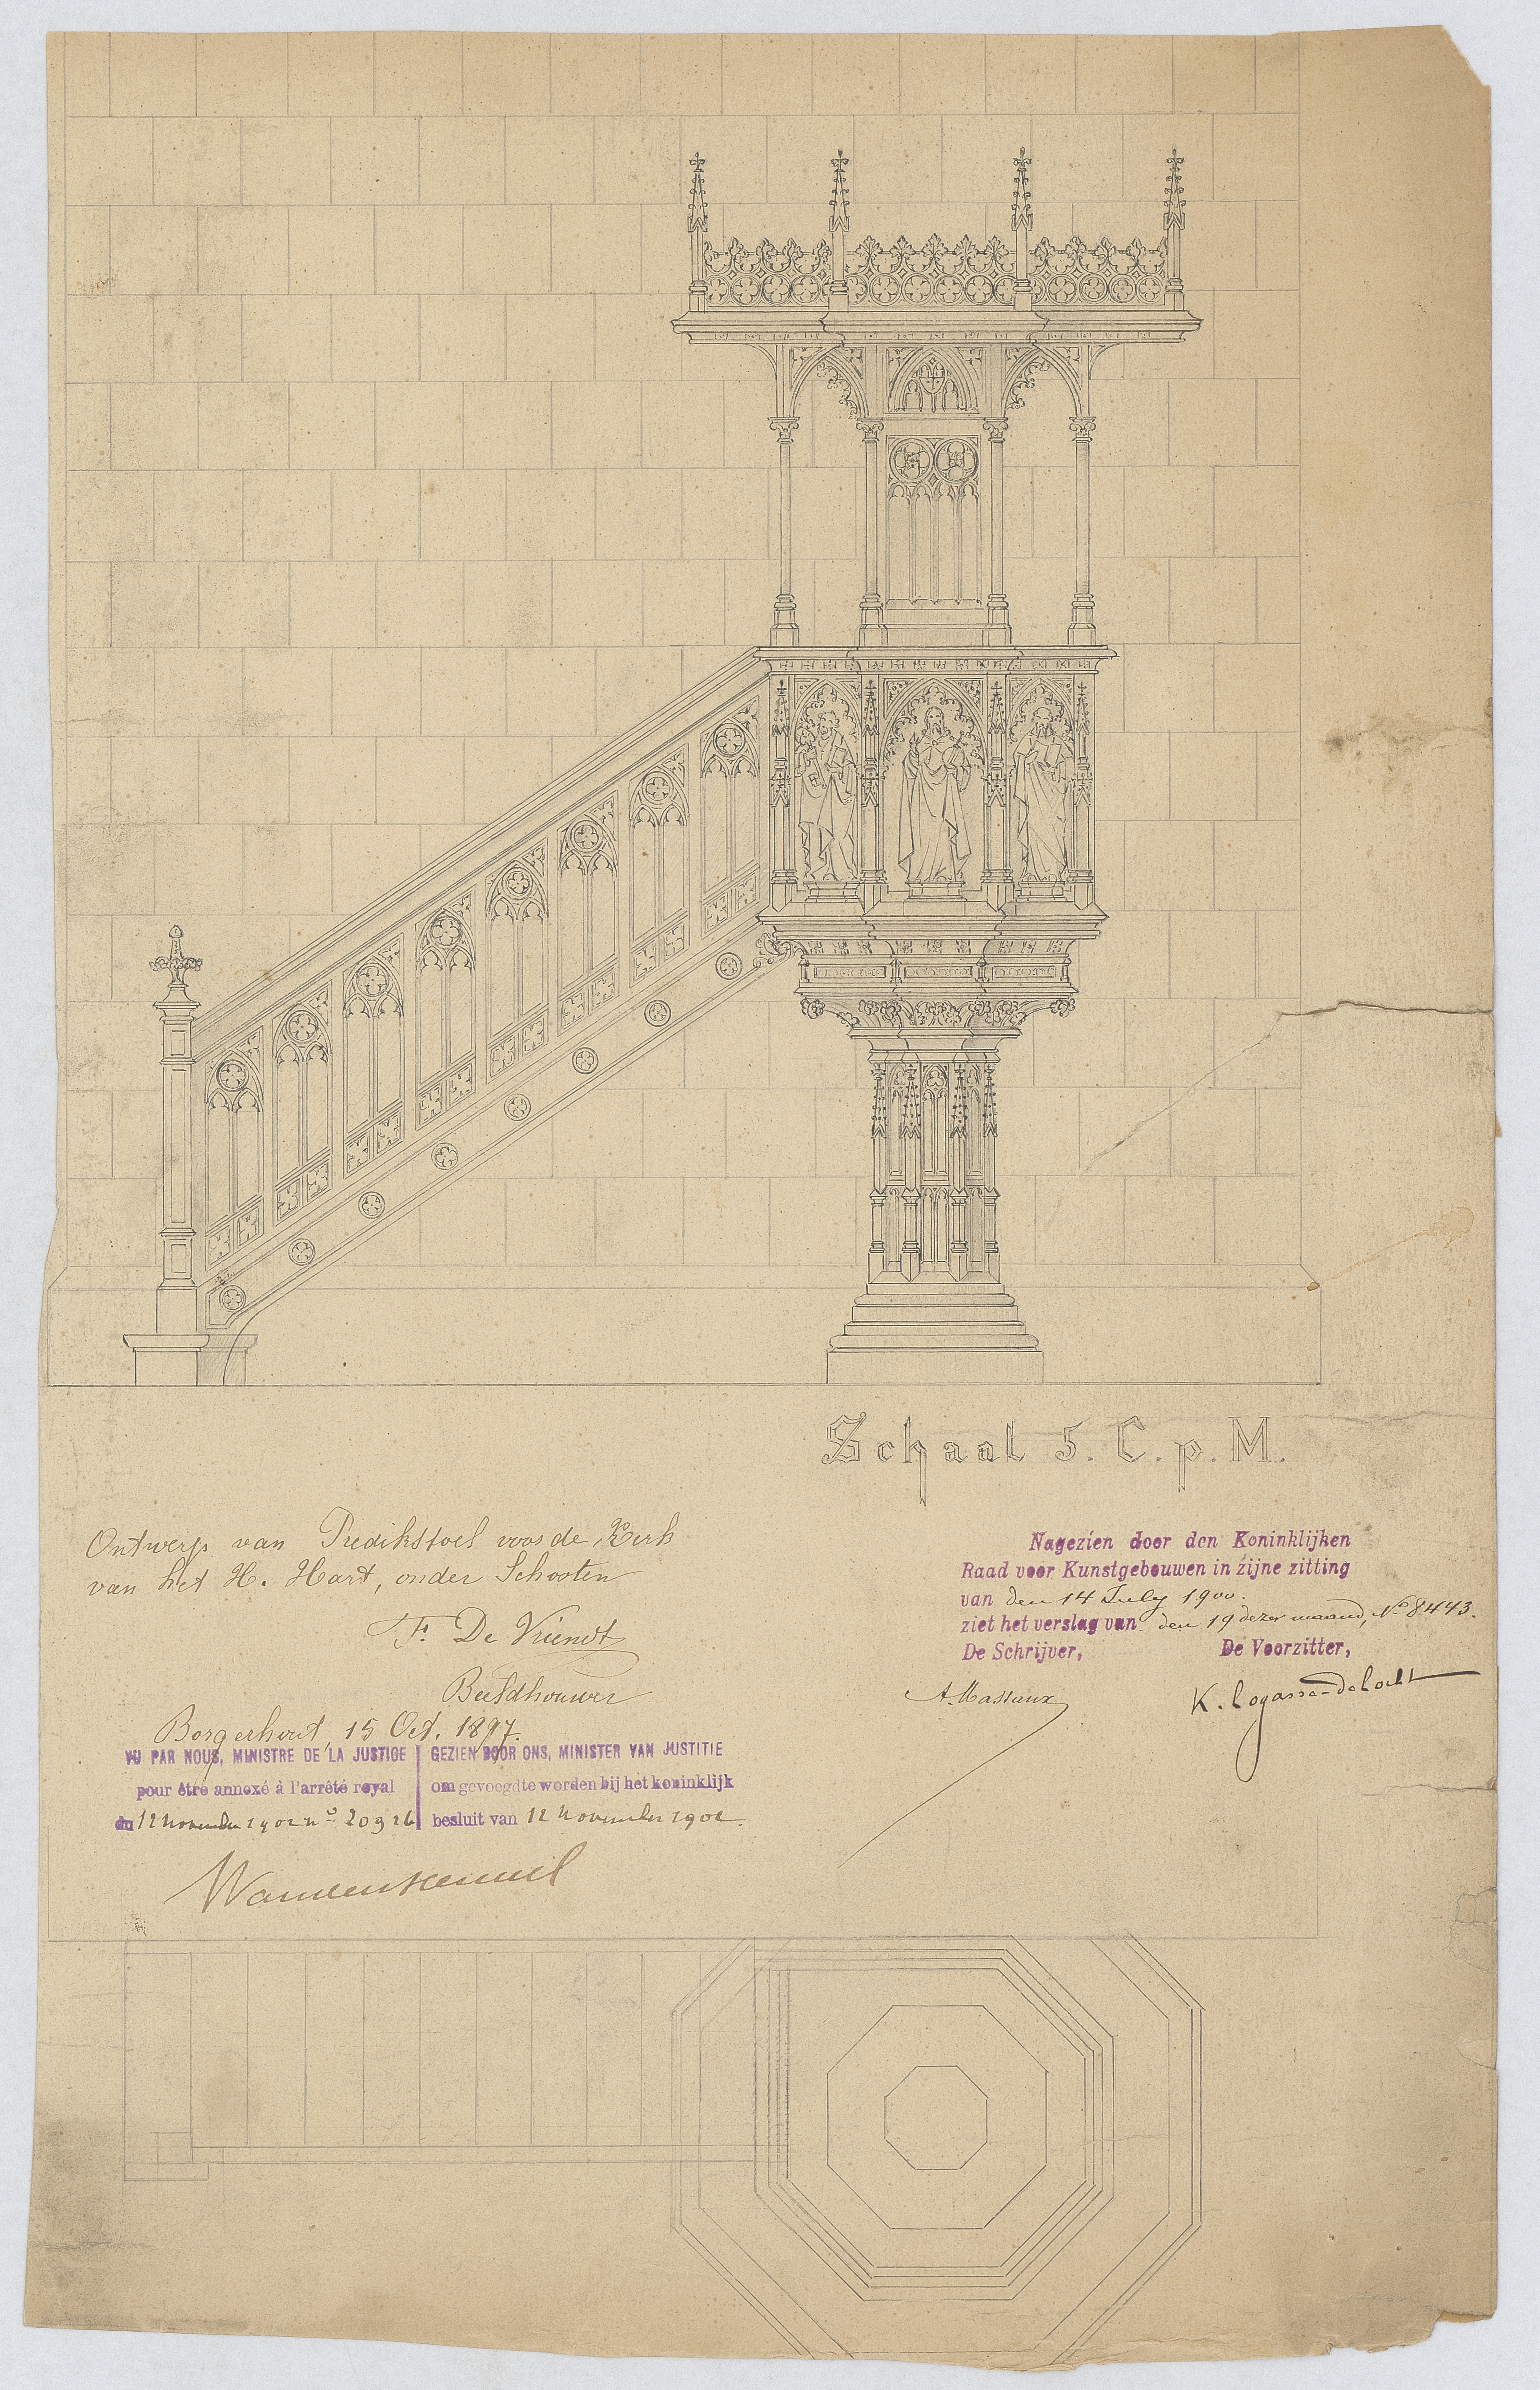 Schaal 5. C. p. M.
Ontwerp van Predikstoel voor de Kerk
van het H. Hart, onder Schooten
Fs. De Vriendt
Beeldhouwer
Borgerhout, 15 Oct. 1897.
VU PAR NOUS, MINISTRE DE LA JUSTICE
pour être annexé à l'arrêté royal
du 12 novembre 1902 no 20926
GEZIEN DOOR ONS, MINISTER VAN JUSTITIE
om gevoegd te worden bij het koninklijk
besluit van 12 november 1902.
Nagezien door den Koninklijken
Raad voor Kunstgebouwen in zijne zitting
van den 14 July 1900.
ziet het verslag van den 19 dezer maand, No 8443.
De Schrijver,
De Voorzitter,
A. Massaux